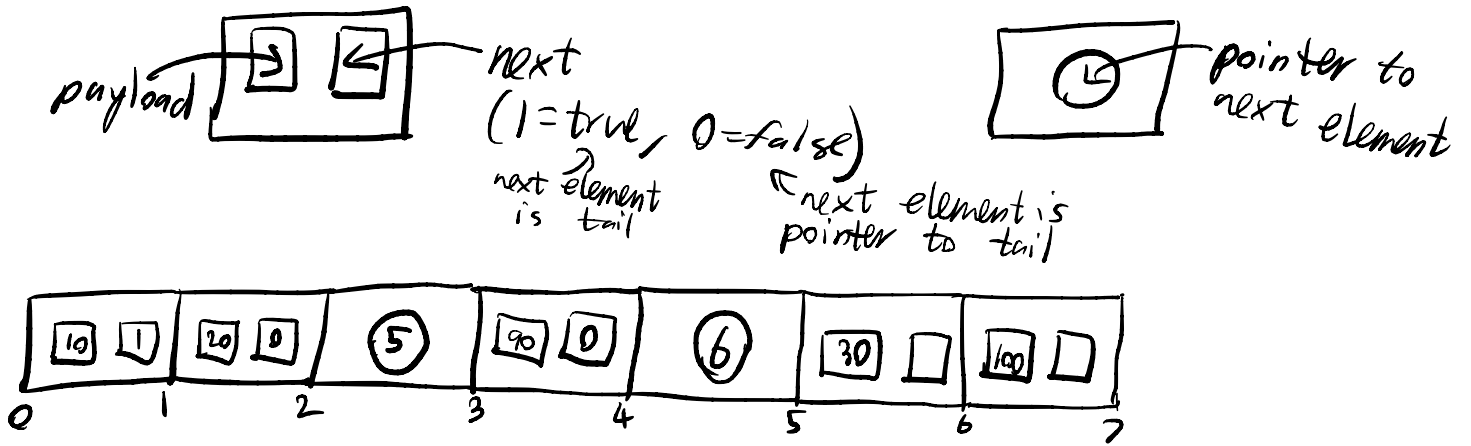 payload
next
(1=true, 0=false)
next element
is tail
next element is
pointer to tail
pointer to
next element
10 1 20 0 5 90 0 6 30 100
0 1 2 3 4 5 6 7